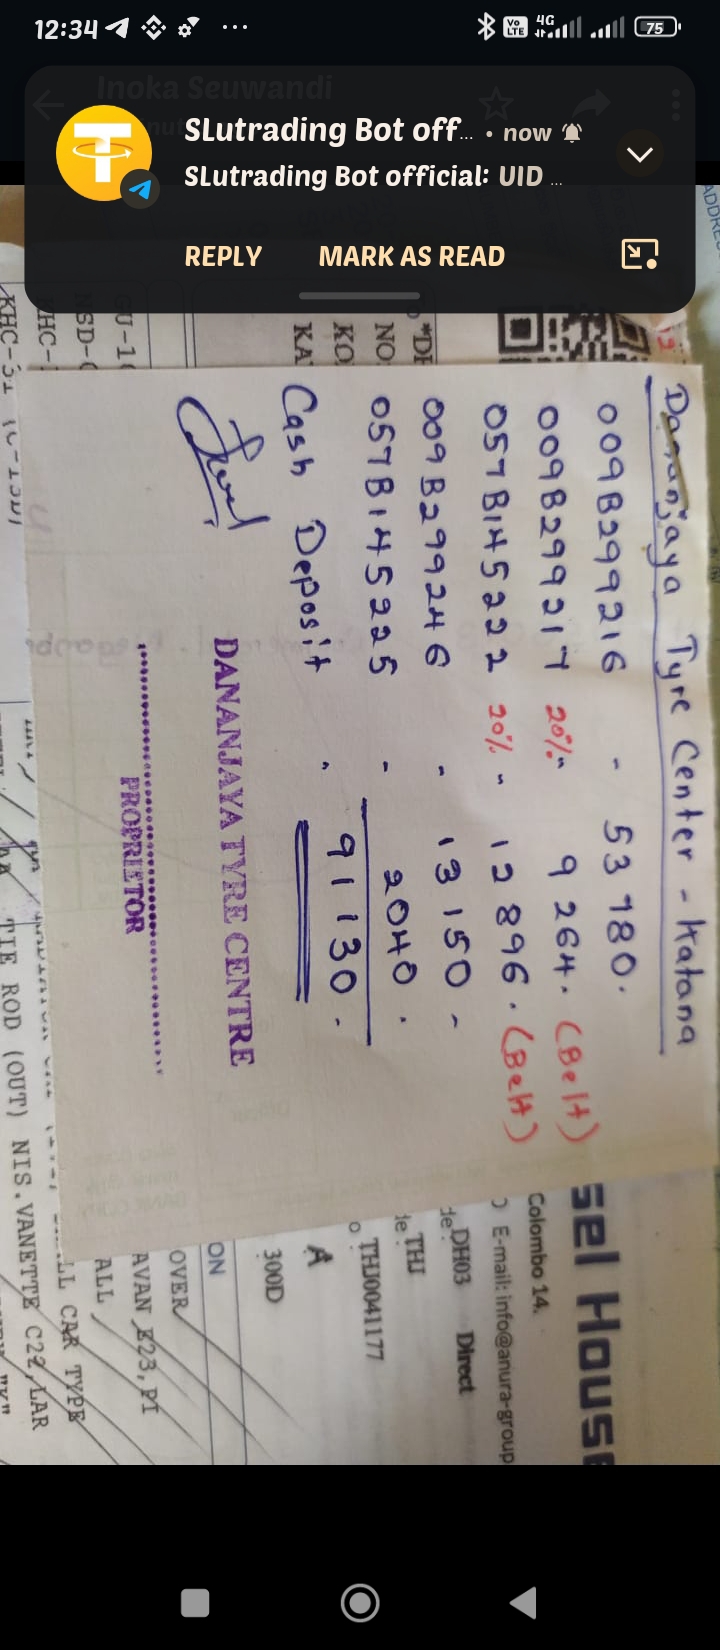 12:34
Vo LTE 4G 75
Inoka Seuwandi
SLutrading Bot off... • now
SLutrading Bot official: UID ...
REPLY MARK AS READ
Dananjaya Tyre Center - Katana
009B299216 - 53780.
009B299217 20% " 9264. (Belt)
057B145222 20% " 12896. (Belt)
009B299246 - 13150 -
057B145225 - 2040.
Cash Deposit . 91130.
DANANJAYA TYRE CENTRE
PROPRIETOR
sel House
Colombo 14.
E-mail: info@anura-group
DH03 Direct
THJ
THJ0041177
A
300D
ON
OVER
AVAN E23,PI
ALL
LL CAR TYPE
TIE ROD (OUT) NIS.VANETTE C22,LAR
*DI
NO
KO
KA
GU-1
NSD-
KHC-31
ADDRE